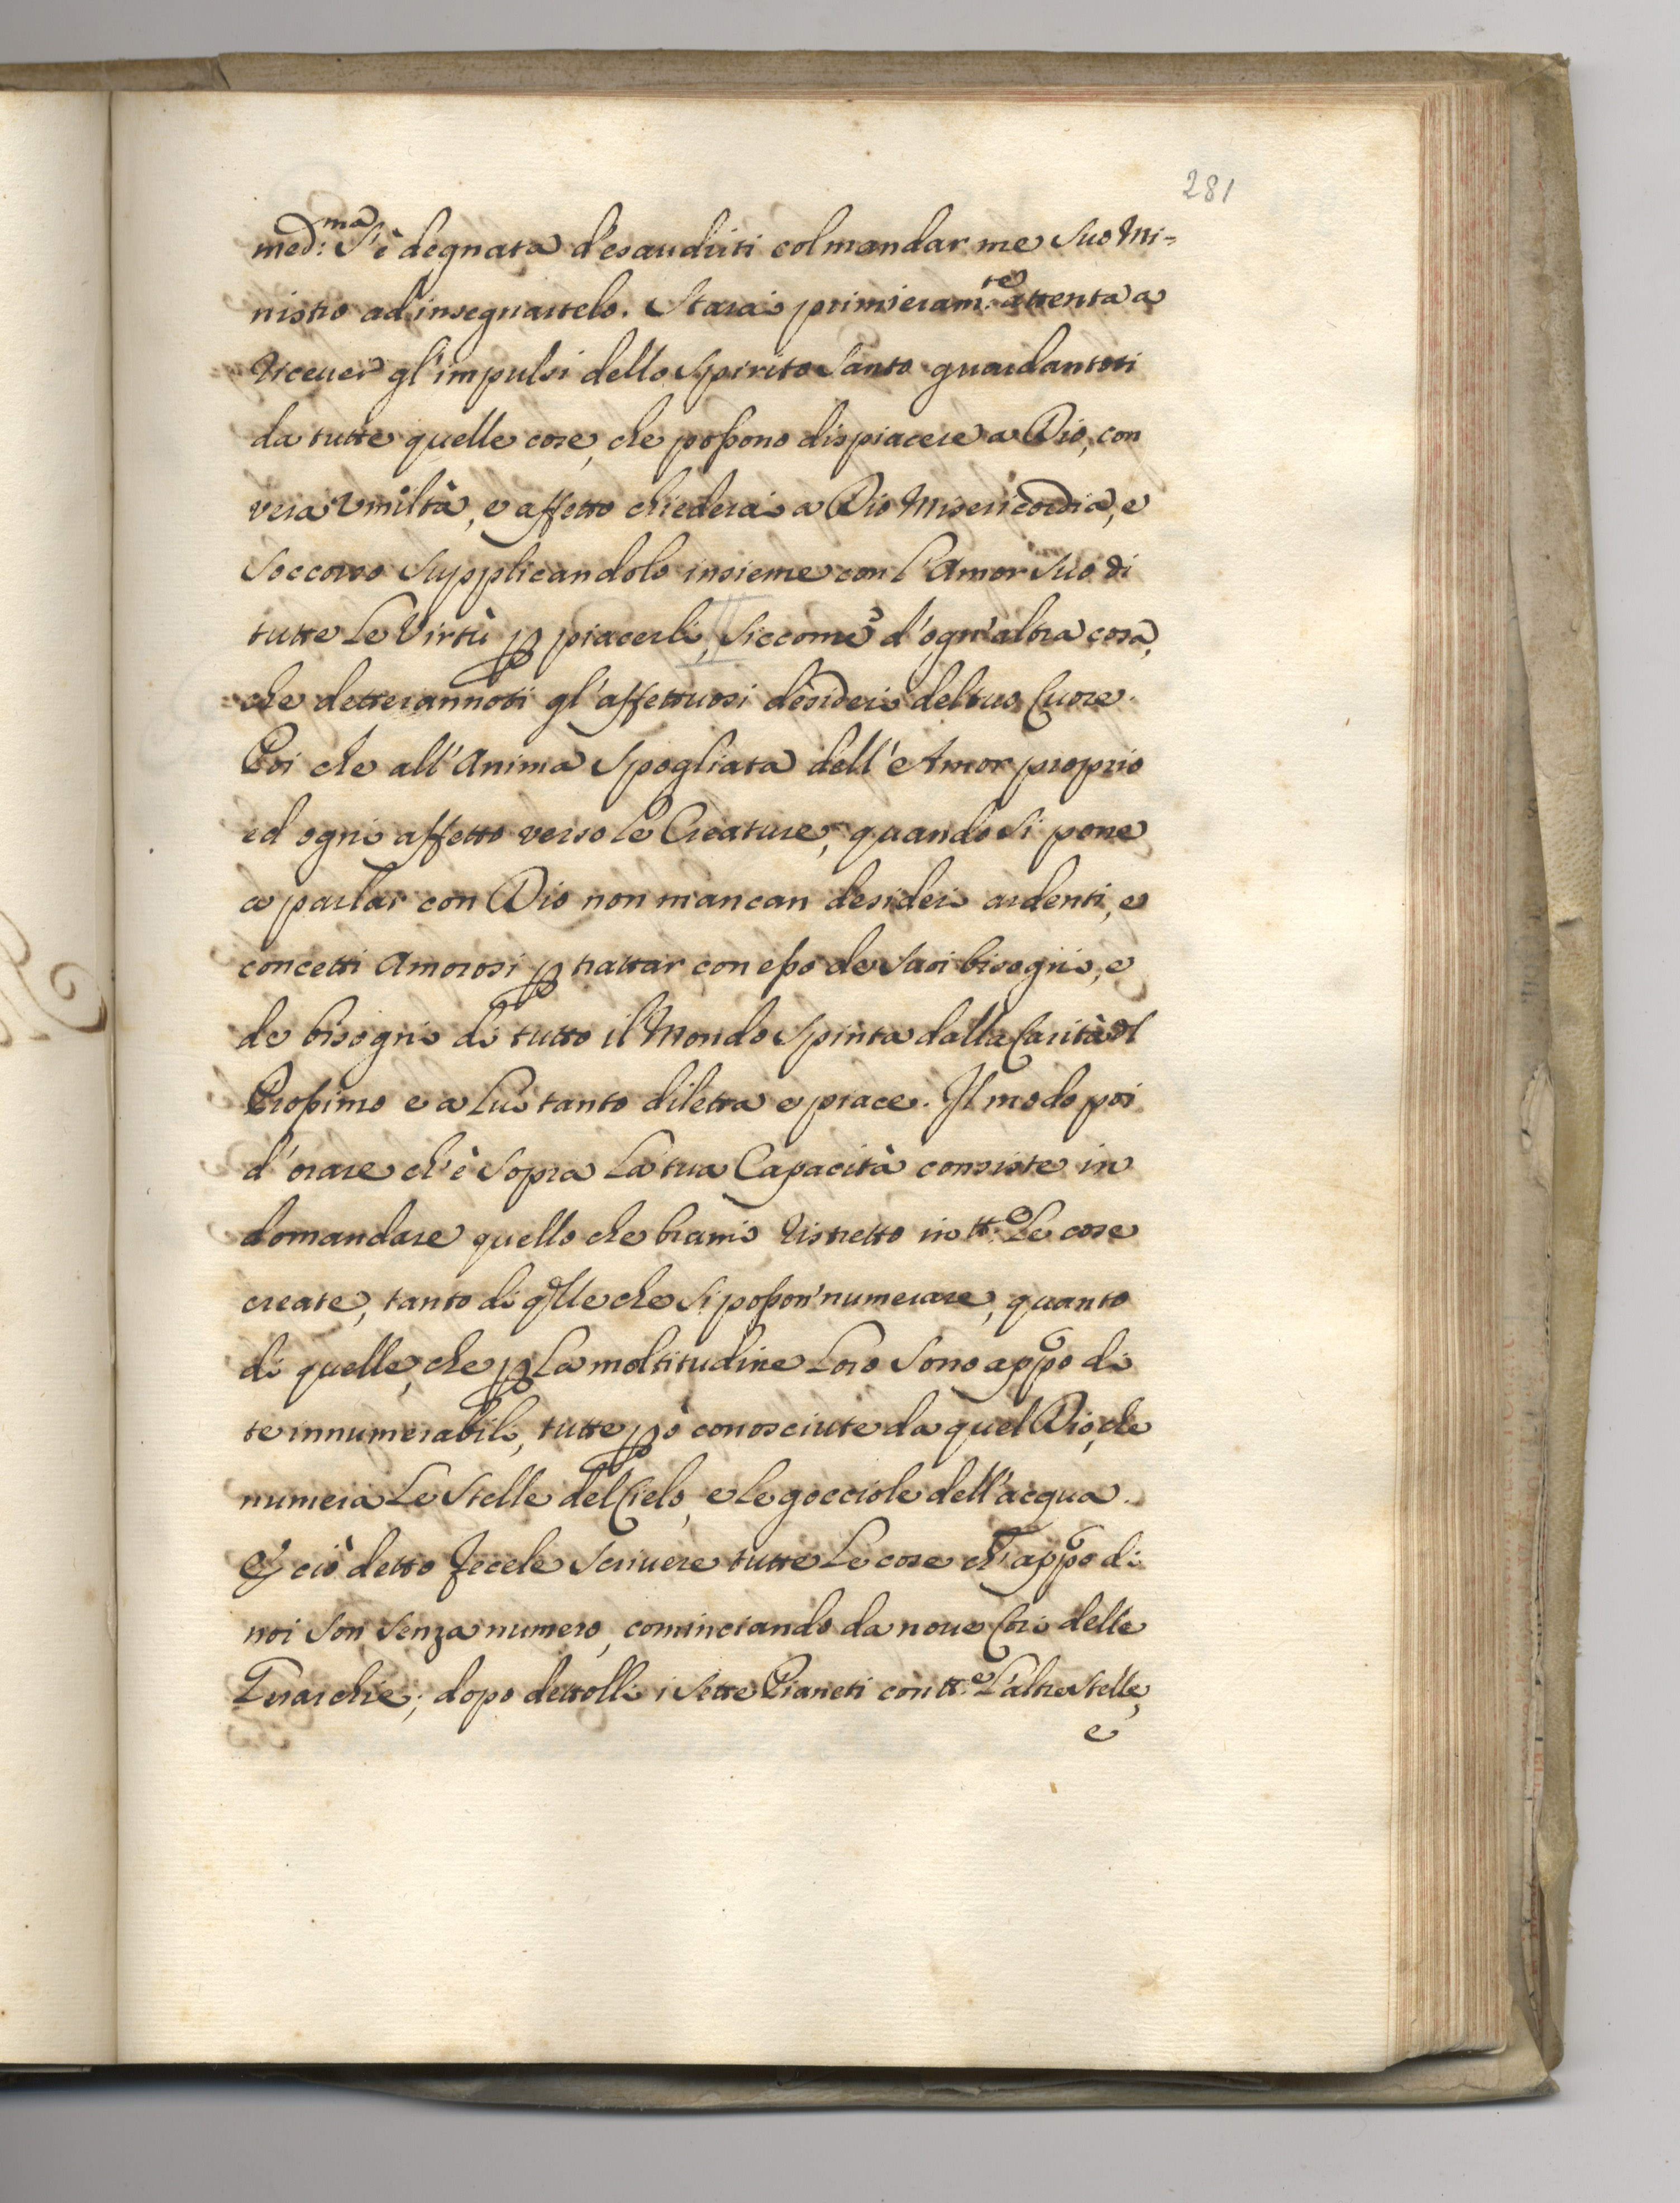 281
med:ma S'è degnata d'esaudirti col mandar me Suo Mi=
nistro ad insegnartelo. Starai primieram:te attenta a
ricever gl'impulsi dello Spirito Santo guardantoti
da tutte quelle cose, che possono dispiacere a Dio, con
vera Umiltà, e affetto chiederai a Dio Misericordia, e
Soccorso Supplicandolo insieme con l'Amor Suo di
tutte Le Virtù p piacerli, Siccome d'ogn'altra cosa,
che detterannoti gl'affettuosi desideri del tuo Cuore.
Poi che all'Anima Spogliata dell'Amor proprio
ed ogni affetto verso le Creature, quando Si pone
a parlar con Dio non mancan desideri ardenti, e
concetti Amorosi p trattar con esso de Suoi bisogni, e
de bisogni di tutto il Mondo Spinta dalla Carità dl
Prossimo e a Lui tanto diletta e piace. Il modo poi
d'orare ch'è Sopra La tua Capacità consiste in
domandare quello che brami ristretto in tt:e Le cose
create, tanto di qlle che Si posson' numerare, quanto
di quelle, che p La moltitudine Loro Sono appo di
te innumerabili, tutte pò conosciute da quel Dio, che
numera Le Stelle del Cielo, e Le gocciole dell'acqua.
E ciò detto fecele Scrivere tutte Le cose ch'appo di
noi Son Senza numero, cominciando da nove Cori delle
Gerarchie; dopo dettolli i Sette Pianeti con tt:e L'altre Stelle,
e